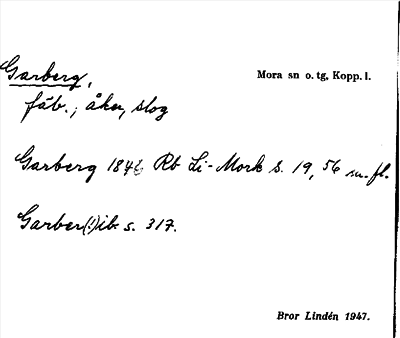 Garberg,
Mora sn o. tg, Kopp. l.
fäb.; åker, slog
Garberg 1846 Rb Li-Mork s. 19, 56 m. fl.
Garber(!) ib. s. 317.
Bror Lindén 1947.